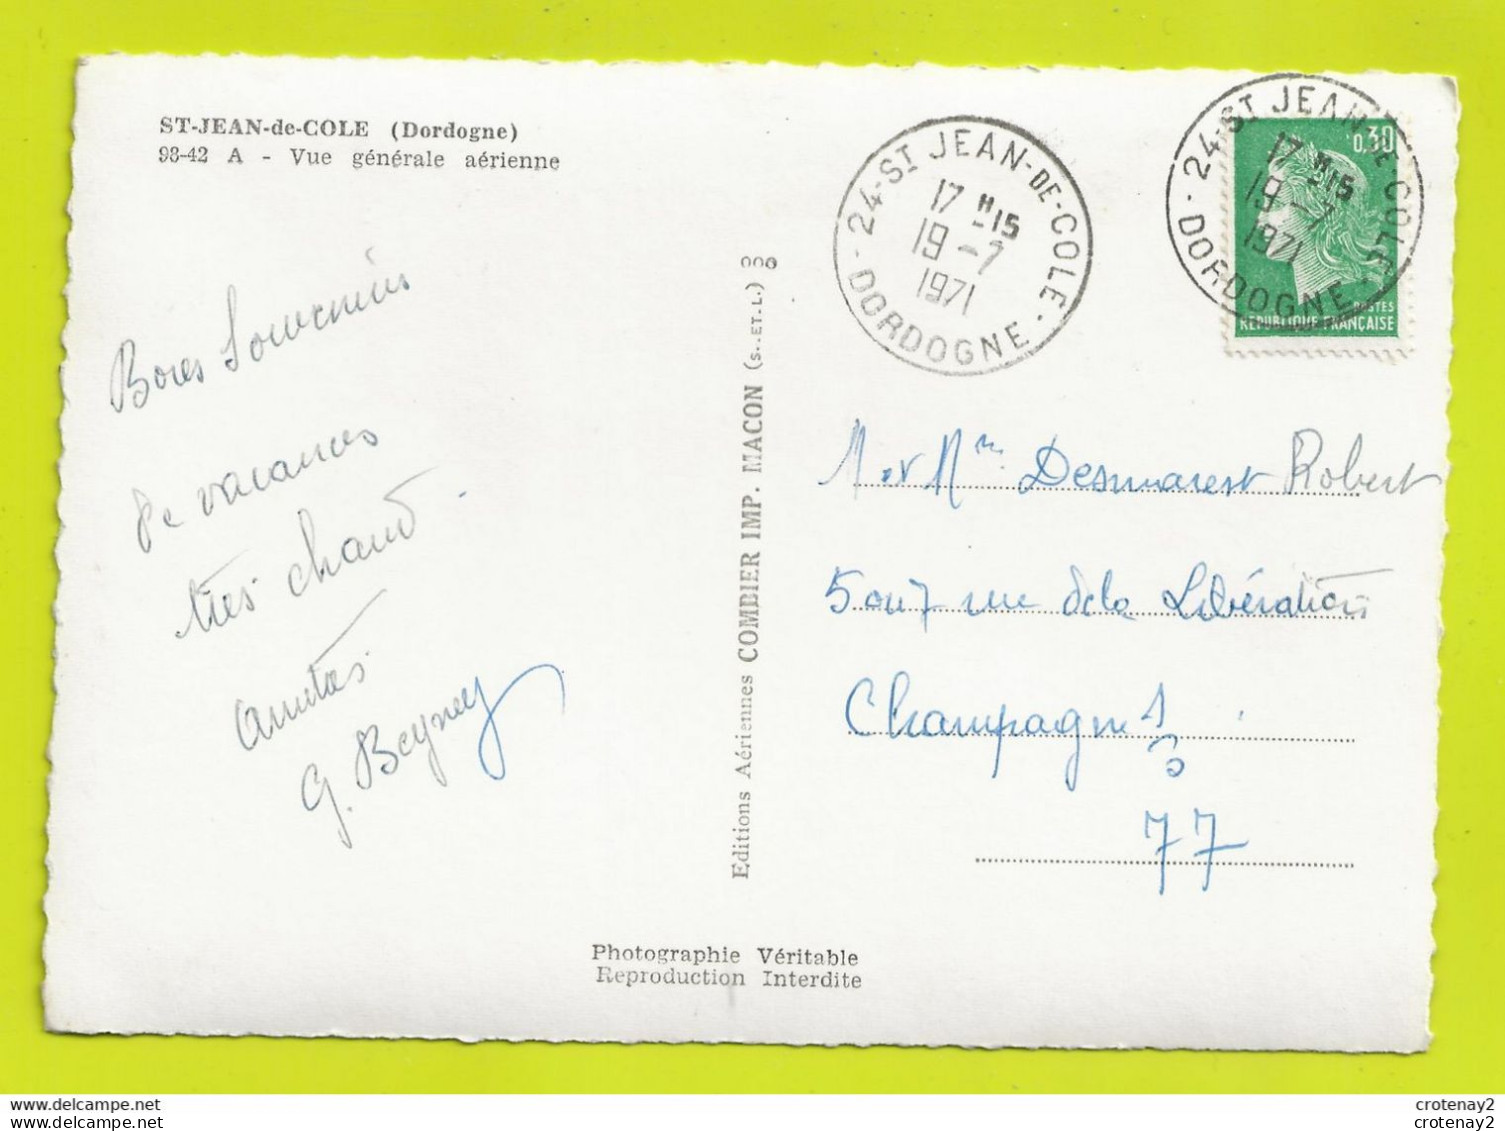 ST-JEAN-de-COLE (Dordogne)
98-42 A - Vue générale aérienne
Bons Souvenirs
de vacances
très chaud.
amitiés
G. Beyney
Editions Aériennes COMBIER IMP. MACON (S..ET.L.)
24-ST JEAN-DE-COLE
17 H15
19-7
1971
DORDOGNE
24-ST JEAN-DE-COLE
17 H15
19-7
1971
DORDOGNE
0,30
POSTES
REPUBLIQUE FRANÇAISE
M et Mme Desmarest Robert
5 ou 7 rue de la Libération
Champagne s
77
Photographie Véritable
Reproduction Interdite
delcampe.net
the world
crotenay2
crotenay2